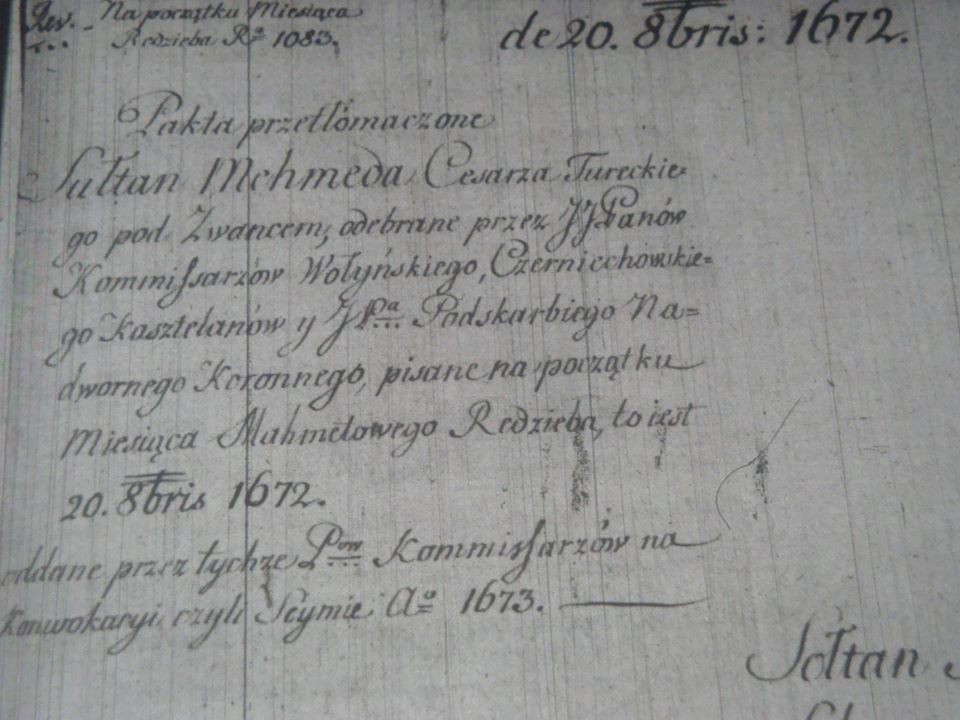 Rev. - Na początku Miesiąca
Redzieba Rº 1083.
de 20. 8bris: 1672.
Pakta przetłómaczone
Sułtan Mehmeda Cesarza Tureckie=
go pod Zwancem, odebrane przez JJPanów
Kommissarzów Wołyńskiego, Czerniechowskie=
go Kasztelanów y JPª Podskarbiego Na=
dwornego Koronnego, pisane na początku
Miesiąca Mahmetowego Redzieba, to iest
20. 8bris 1672.
oddane przez tychze Pow Kommissarzów na
Konwokacyi czyli Seymie Aº 1673.
Sołtan